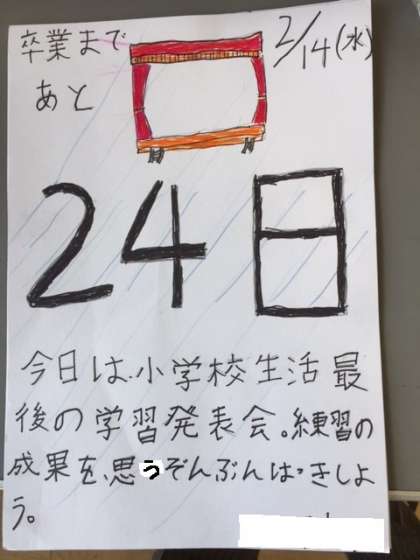 卒業まで
2/14(水)
あと
24日
今日は小学校生活最
後の学習発表会。練習の
成果を、思うぞんぶんはっきしよ
う。